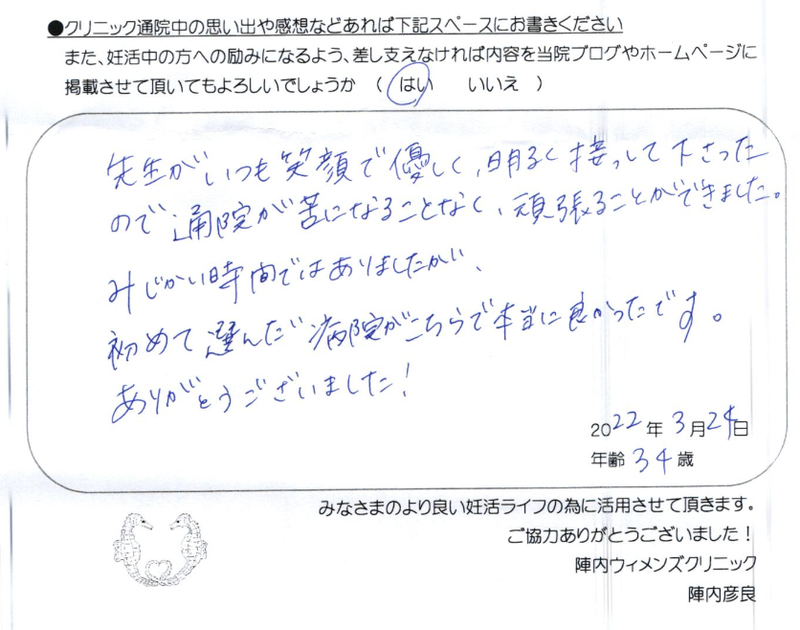 ●クリニック通院中の思い出や感想などあれば下記スペースにお書きください
また、妊活中の方への励みになるよう、差し支えなければ内容を当院ブログやホームページに
掲載させて頂いてもよろしいでしょうか （ はい いいえ ）
先生がいつも笑顔で優しく、明るく接っして下さった
ので通院が苦になることなく、頑張ることができました。
みじかい時間ではありましたがい、
初めて選んだ病院がこちらで本当に良かったです。
ありがとうございました！
2022年 3月24日
年齢 34歳
みなさまのより良い妊活ライフの為に活用させて頂きます。
ご協力ありがとうございました！
陣内ウィメンズクリニック
陣内彦良